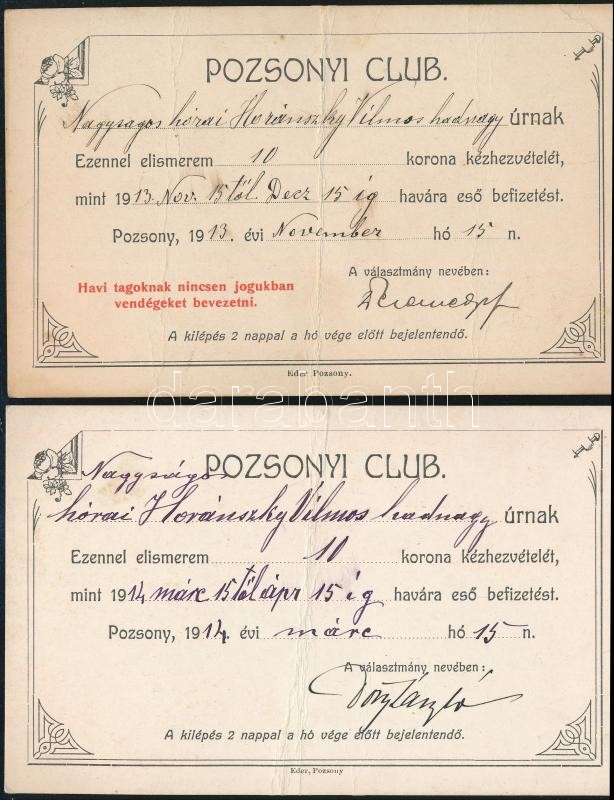 POZSONYI CLUB.
Nagyságos hórai Horánszky Vilmos hadnagy úrnak
Ezennel elismerem 10 korona kézhezvételét,
mint 1913 Nov. 15től Decz 15 ig havára eső befizetést.
Pozsony, 1913. évi November hó 15 n.
A választmány nevében:
Havi tagoknak nincsen jogukban
vendégeket bevezetni.
A kilépés 2 nappal a hó vége előtt bejelentendő.
Eder Pozsony.
darabanth
POZSONYI CLUB.
Nagyságos
hórai Horánszky Vilmos hadnagy úrnak
Ezennel elismerem 10 korona kézhezvételét,
mint 1914 márc 15től ápr 15 ig havára eső befizetést.
Pozsony, 1914. évi márc hó 15 n.
A választmány nevében:
László
A kilépés 2 nappal a hó vége előtt bejelentendő.
Eder, Pozsony